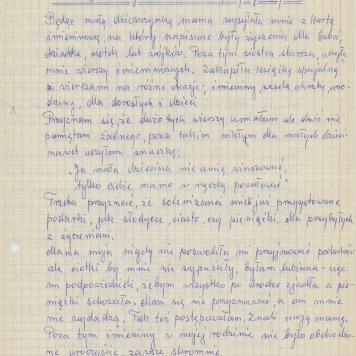 Będąc małą dziewczynką, mama wysyłała mnie z kartą
imieninową, na której napisane były życzenia dla babci,
dziadka, ciotek lub wujków. Poza tym siostra starsza, uczyła
mnie wierszy imieninowych. Zakupiła książkę specjalną
z wierszami na różne okazje; imieniny, wesela chrzty uro-
dziny, dla dorosłych i dzieci.
Przyznam się że dużo tych wierszy umiałam ale dziś nie
pamiętam żadnego, poza takim malutkim dla małych dzieci
nawet uczyłam wnuczkę:
„Ja mała dziecina nie umię winszować,
tylko ciebie mamo w rączkę pocałować"
Trzeba przyznać, że solenizanci mieli już przygotowane
podarki, jak słodycze, ciasto, czy pieniążki, dla przybyłych
z życzeniami.
Mama moja nigdy nie pozwoliła mi przyjmować podarków
ale ciotki by mnie nie wypuściły, byłam lubiana
mi podpowiedziała, żebym wszystko po drodze zjadła a pie-
niążki schowała. Mam się nie przyznawać, a oni mnie
nie wydadzą. Tak też postępowałam, znali moją mamę.
Poza tym imieniny w mojej rodzinie nie było obchodzo-
ne zawsze skromnie.